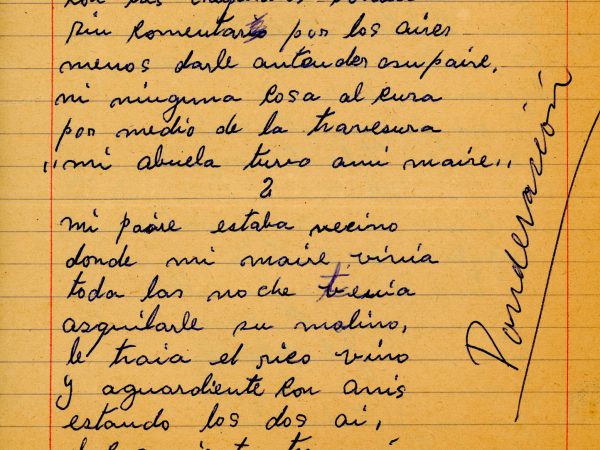 sin comentario por los aires
menos darle antender asupaire,
ni ninguna cosa al cura
por medio de la travesura
"mi abuela tuvo ami maire"
2
mi paire estaba vecino
donde mi maire vivia
toda las noche venia
su molino,
le traia el rico vino
y aguardiente con anis
estando los dos ai,
Ponderación